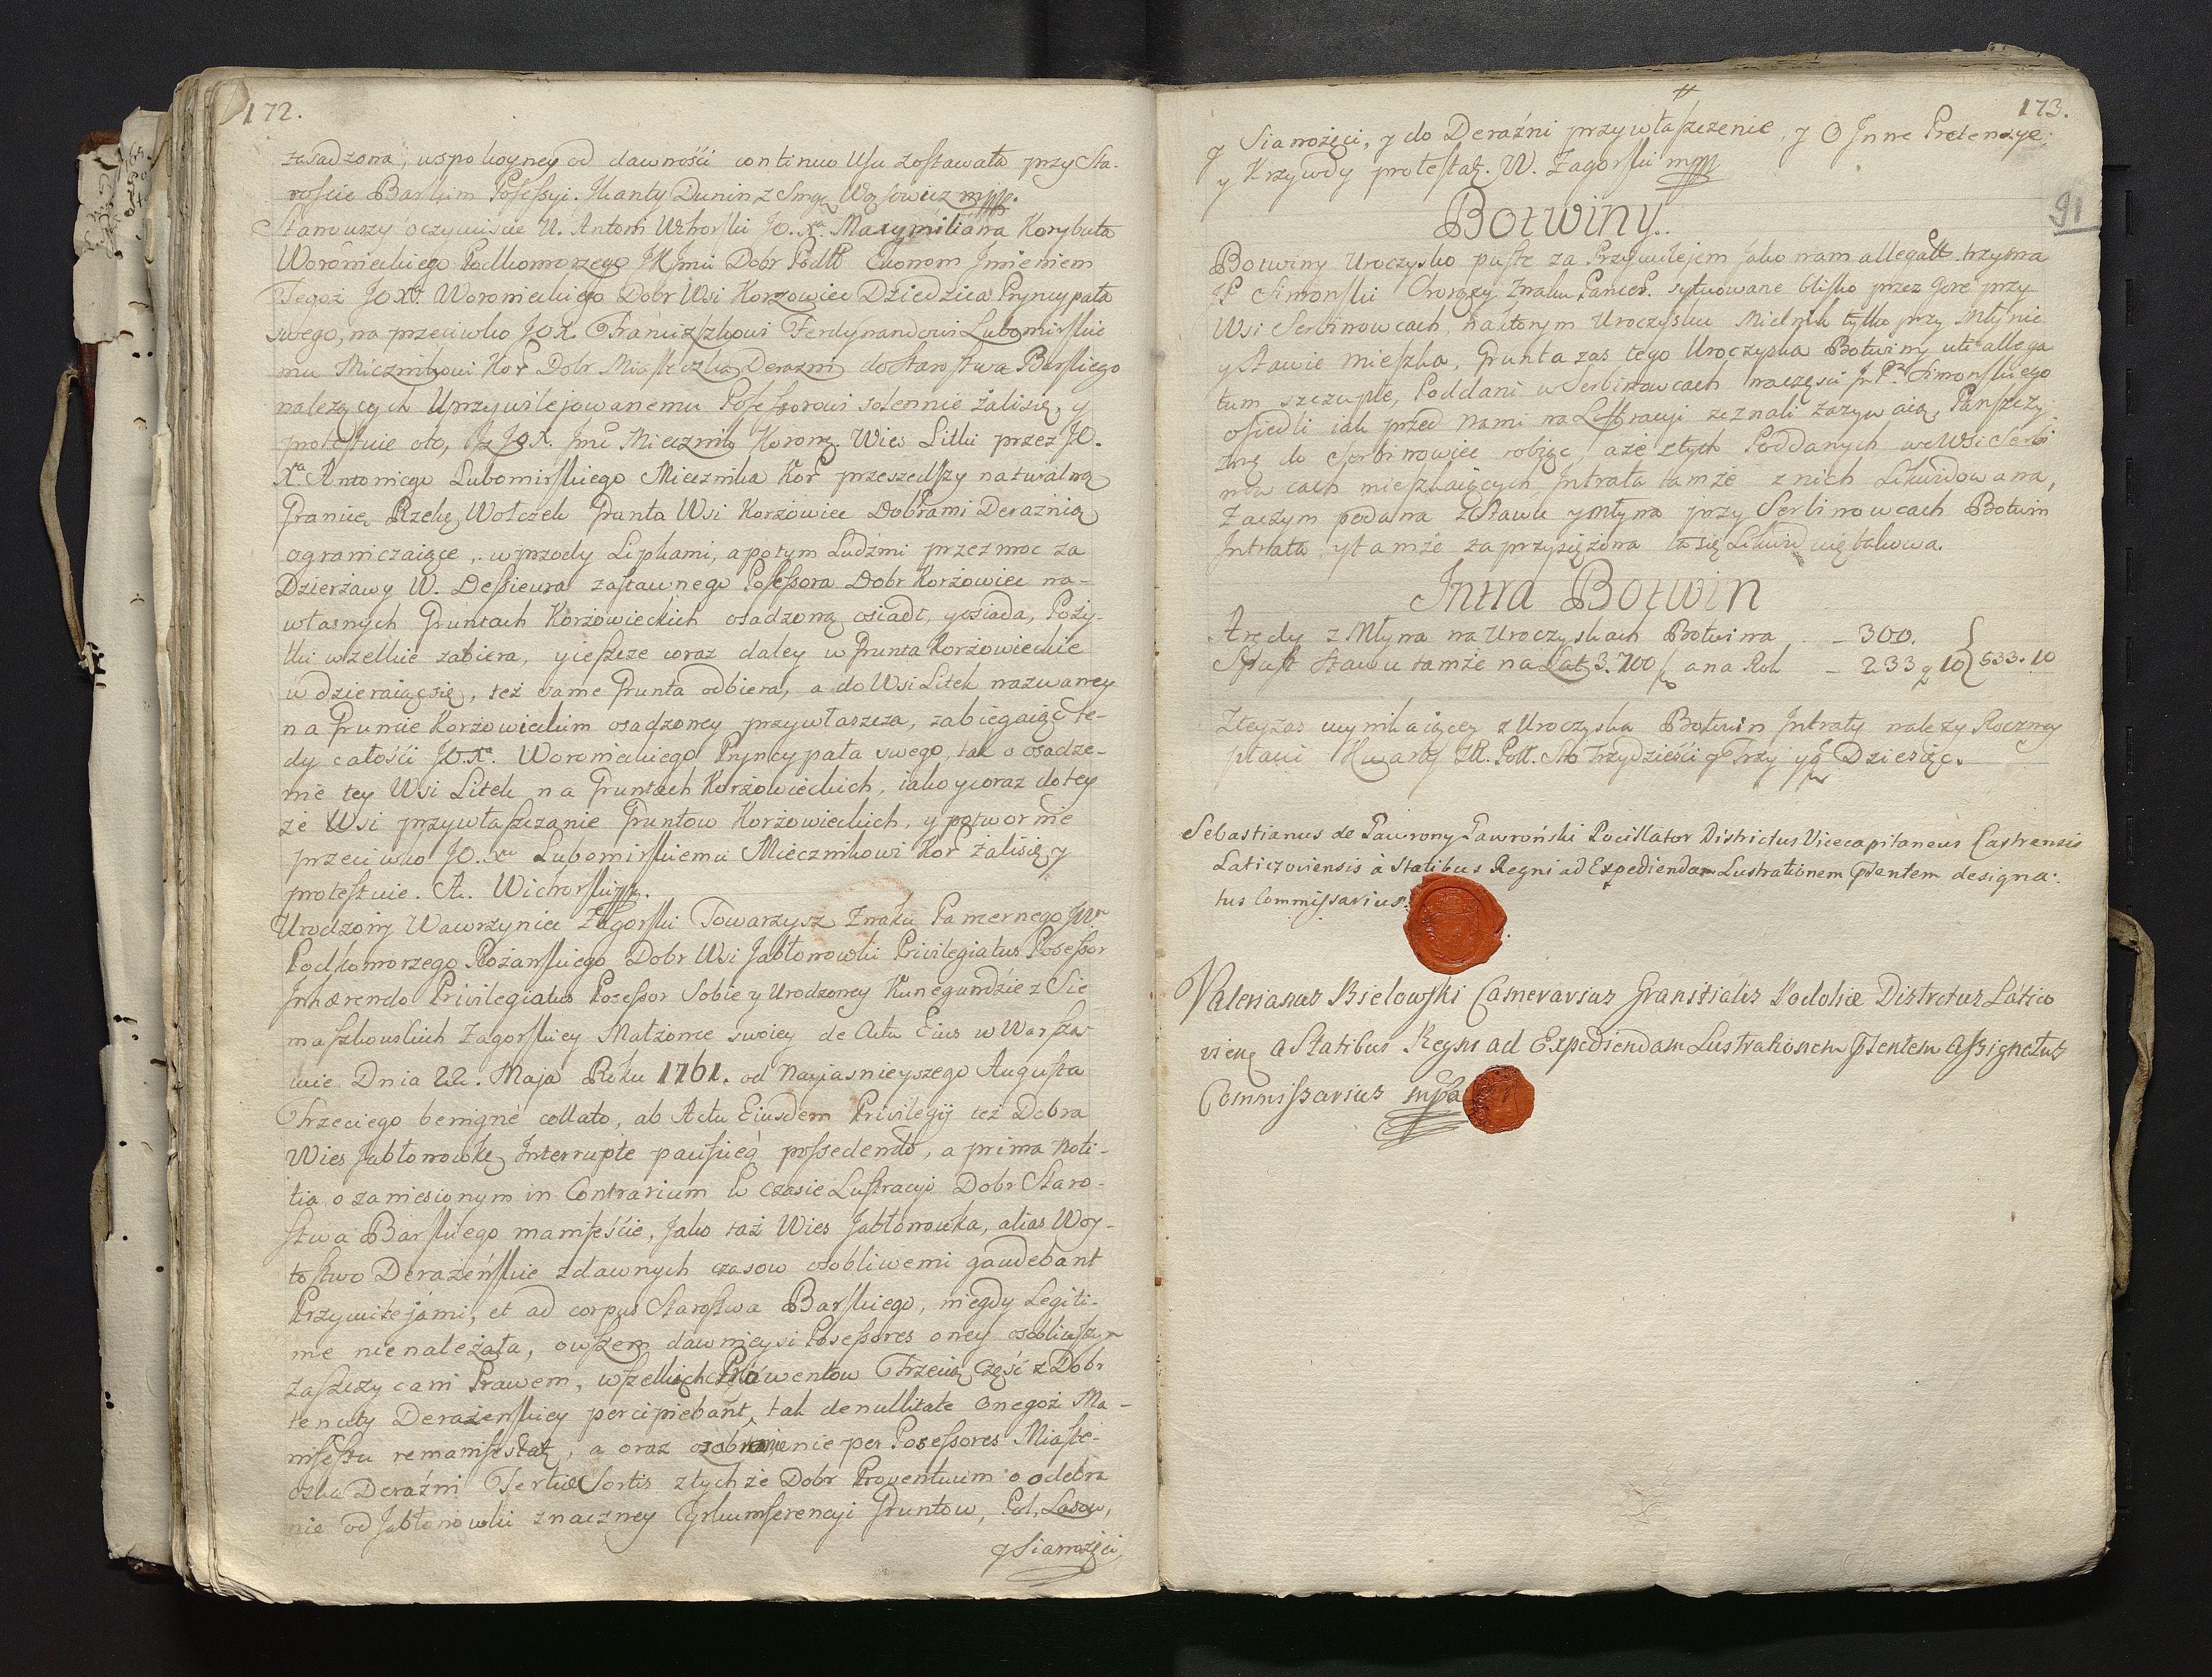 172.
zasadzona, uspokoyney od dawności continuo Usu zostawała przy Sta-
roście Barskim Possessyi. Kanty Dunin z Wąsowicz mpp.
Stanowszy oczywiście U. Antoni Wichorski JO. Xa. Maxymiliana Korybuta
Woronieckiego Podkomorzego JK Jmci Dobr Ekonom Jmieniem
Tegoż JOXa. Woronieckiego Dobr Wsi Korzowiec Dziedzica Pryncypała
swego, na przeciwko JOX. Franciszkowi Ferdynandowi Lubomirskie
mu Miecznikowi Kor Dobr Miasteczka Derazni do Starostwa Barskiego
należących Uprzywilejowanemu Possessorowi solennie żalisię, y
protestuie oto, Jż JOX. Jmć Miecznik Koronj. Wies Litki przez JO.
Xa. Antoniego Lubomirskiego Miecznika Kor przeszedszy naturalną
Granicę Rzekę Wołczek Grunta Wsi Korzowiec Dobrami Deraźnią
ograniczaiące, wprzody Lipkami, a potym Ludźmi przez moc za
Dzierżawy W. Dessieura zastawnego Possessora Dobr Korżowiec na-
własnych Gruntach Korżowieckich osadzoną osiadł, y osiada, Poży-
tki wszelkie zabiera, y ieszcze coraz daley w Grunta Korżowieckie
wdzieraiąc się, też same Grunta odbiera, a do Wsi Litek nazwaney
na Gruncie Korżowieckim osadzoney przywłaszcza, zabiegaiąc te-
dy całości JO.Xa. Woronieckiego Pryncypała swego, tak o osadze-
nie tey Wsi Litek na Gruntach Korżowieckich, iako y coraz do tey
że Wsi przywłaszczanie Gruntow Korżowieckich, y potwornie
przeciwko JO.Xu Lubomirskiemu Miecznikowi Kor żalisię y
protestuie. A. Wichorski mpp.
Urodzony Wawrzyniec Zagorski Towarzysz Znaku Pancernego JW
Podkomorzego Rożańskiego Dobr Wsi Jabłonowki Privilegiatus Possessor
Jnhærendo Privilegiatus Possessor Sobie y Urodzoney Kunegundzie z Sie
maszkowskich Zagorskiey Małżonce swoiey de Actu Eius w Warsza-
wie Dnia 22. Maja Roku 1761. od Nayiasnieyszego Augusta
Trzeciego benigne collato, ab Actu Eiusdem Privilegij też Dobra
Wies Jabłonowkę Interrupte pacificą possedendo, a prima noti-
tia o zaniesionym in Contrarium w czasie Lustracyi Dobr Staro-
stwa Barskiego manifeście, Jako taż Wies Jabłonowka, alias Woy-
tostwo Derazeńskie zdawnych czasow osobliwemi gaudebant
Przywilejami, et ad corpus Starostwa Barskiego, niegdy Legiti-
me nienależała, owszem dawnieysi Possessores oney osobliwszym
zaszczycani Prawem, wszelkich Prowentow Trzecią Część z Dobr
tenuty Derazenskiey percipiebant, tak de nullitate onegoż Ma-
nifestu remanifestat, a oraz per Possessores Miaste-
czka Deraźni Tertiæ Sortis z tychże Dobr Proventuum o odebra
nie od Jabłonowki znaczney Cyrkumferencyi Gruntow, Pol, Lasow,
y Sianożęci,
173.
91
y Sianożęci, y do Deraźni przywłaszczenie, y O Jnne Pretensye,
y Krzywdy protestat. W. Zagorski mpp
Botwiny.
Botwiny Uroczysko puste za Przywilejem Jako nam allegatt. trzyma
JP Simonski Chorąży Znaku Pancer. sytuowane blisko przez Gore przy
Wsi Serbinowcach, na którym Uroczysku Mielnik tylko przy Młynie
y Stawie mieszka, Grunta zas tego Uroczyska Botwiny uti allega
tum szczupłe, Poddani w Serbinowcach na części JP. Simonskiego
osiedli iak przed Nami na Lustracyi zeznali zażywaią, Panszczy
znę do Serbinowiec robiąc, a że z tych Poddanych we Wsi Serbi
nowcach mieszkaiących Jntrata tamże z nich Likwidowana,
Zaczym podana z Stawu y Młyna przy Serbinowcach Botwin
Jntrata, y tamże zaprzysiężona ta się takowa.
Jntra Botwin
Arędy z Młyna na Uroczyskach Botwina - 300.
Spust Stawu tamże na Lat 3. 700 a na Rok - 233 g 10 } 533.10
Zteyzas wynikaiącey z Uroczyska Botwin Jntraty należy Roczney
płacić Kwarty Zł. Poll. Sto Trzydzieści y Trzy y gr Dziesięć.
Sebastianus de Gawrony Gawroński Pocillator Districtus Vicecapitaneus Castrensis
Laticzoviensis à Statibus Regni ad Expediendam Lustrationem Ptentem designa-
tus Commissarius.
Valerianus Bielowski Camerarius Granitialis Podoliæ Districtus Latico
vien a Statibus Regni ad Expediendam Lustrationem Ptentem Assignatus
Commissarius mppa